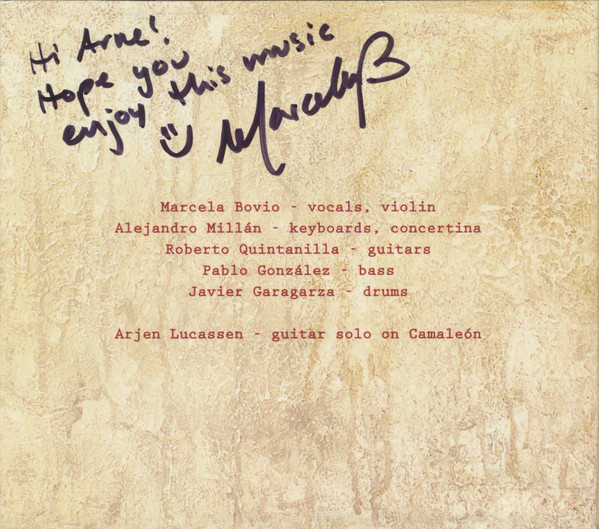 Hi Arne!
Hope you
enjoy this music
MarcelaB
Marcela Bovio - vocals, violin
Alejandro Millán - keyboards, concertina
Roberto Quintanilla - guitars
Pablo González - bass
Javier Garagarza - drums
Arjen Lucassen - guitar solo on Camaleón